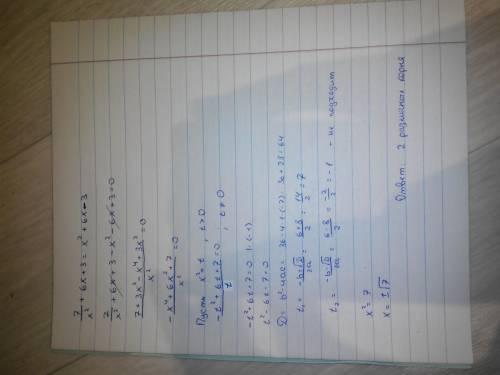 7/x² + 6x + 3 = x² + 6x - 3
7/x² + 6x + 3 - x² - 6x + 3 = 0
(7 + 3x² - x⁴ + 3x²)/x² = 0
(-x⁴ + 6x² + 7)/x² = 0
Пусть x² = t ; t > 0
(-t² + 6t + 7)/t = 0 ; t ≠ 0
-t² + 6t + 7 = 0 | · (-1)
t² - 6t - 7 = 0
D = b² - 4ac = 36 - 4 · 1 · (-7) = 36 + 28 = 64
t₁ = (-b + √D)/2a = (6 + 8)/2 = 14/2 = 7
t₂ = (-b - √D)/2a = (6 - 8)/2 = -2/2 = -1 - не подходит
x² = 7
x = ±√7
Ответ: 2 различных корня